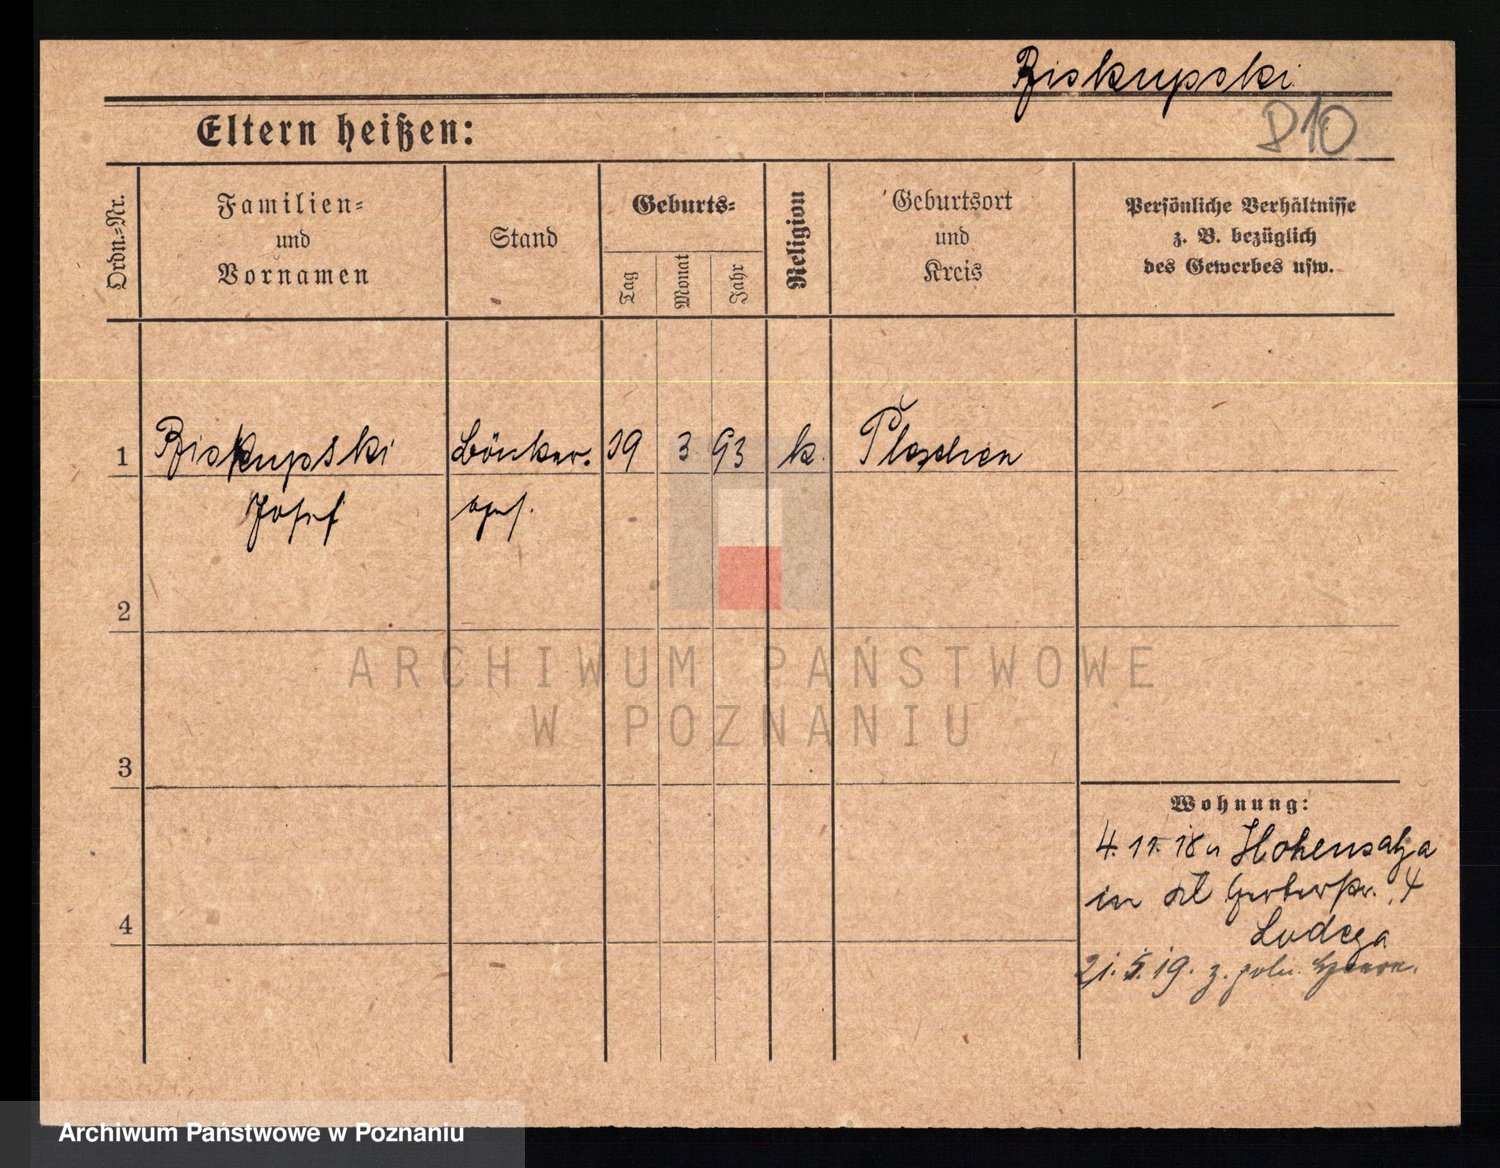 Biskupski
D10
Eltern heißen:
Ordn.-Nr.
Familien-
und
Vornamen
Stand
Geburts-
Tag
Monat
Jahr
Religion
Geburtsort
und
Kreis
Persönliche Verhältnisse
z. B. bezüglich
des Gewerbes usw.
1 Biskupski 19 3 93 k. Pleschen
Josef
2
3
4
Wohnung:
4. 11. 18 Hohensalza
in Gerberstr. 4
21.5.19. z. poln.
ARCHIWUM PAŃSTWOWE
W POZNANIU
Archiwum Państwowe w Poznaniu